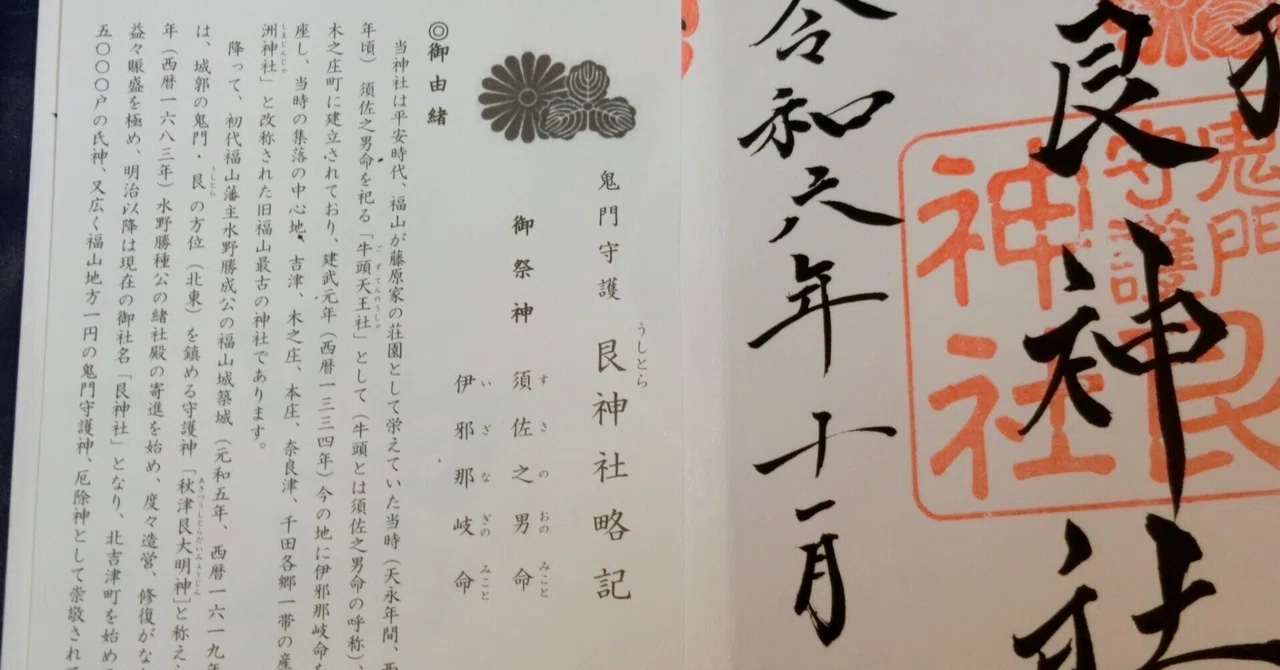 艮神社
鬼門
守護
艮
神社
令和六年十一月
鬼門守護 艮神社略記
うしとら
御祭神 須佐之男命
すさのおのみこと
伊邪那岐命
いざなぎのみこと
◎御由緒
当神社は平安時代、福山が藤原家の荘園として栄えていた当時(天永年間、西
年頃) 須佐之男命を祀る「牛頭天王社」として(牛頭とは須佐之男命の呼称)、
ごずてんのうしゃ
木之庄町に建立されており、建武元年(西暦一三三四年)今の地に伊邪那岐命を
座し、当時の集落の中心地、吉津、木之庄、本庄、奈良津、千田各郷一帯の産
洲神社」と改称された旧福山最古の神社であります。
しまじんじゃ
降って、初代福山藩主水野勝成公の福山城築城(元和五年、西暦一六一九年
は、城郭の鬼門・艮の方位(北東)を鎮める守護神「秋津艮大明神」と称え
うしとら
あきつうしとらだいみょうじん
年(西暦一六八三年)水野勝種公の緒社殿の寄進を始め、度々造営、修復がな
益々賑盛を極め、明治以降は現在の御社名「艮神社」となり、、北吉津町を始め
五〇〇〇戸の氏神、又広く福山地方一円の鬼門守護神、厄除神として崇敬されて